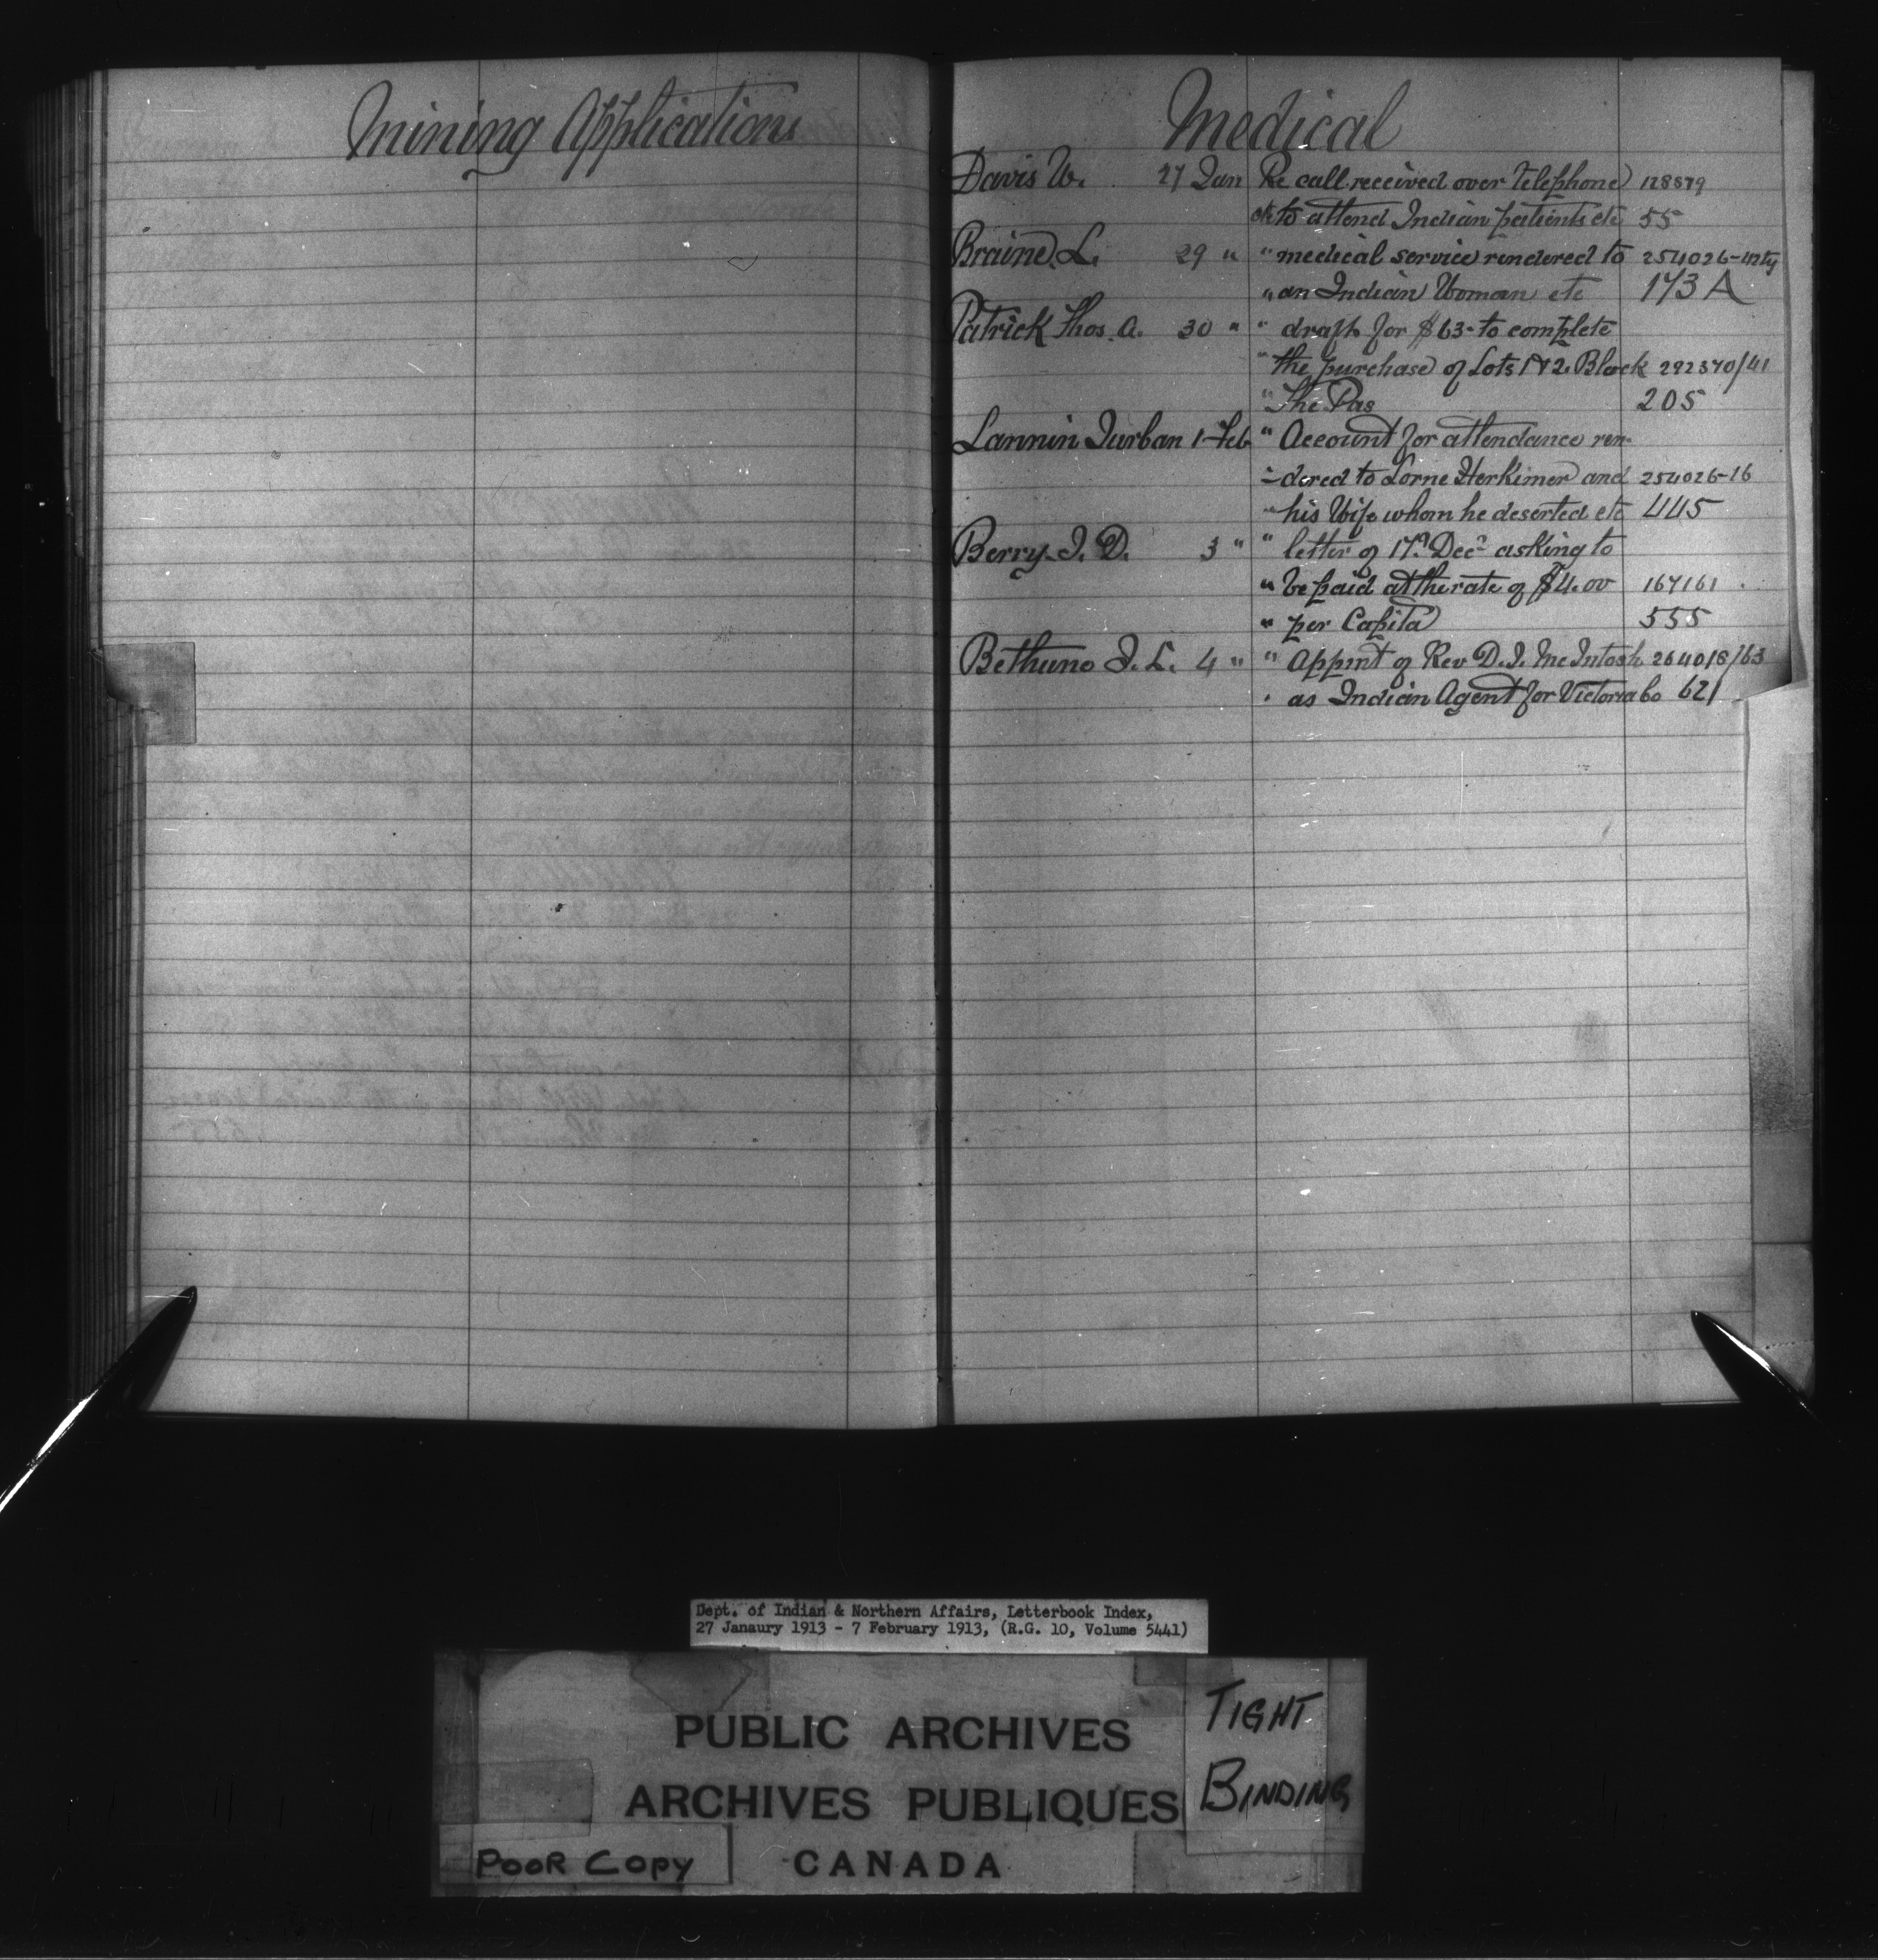 Mining Applications
Medical
Davis W. 27 Jan Re call received over telephone 128579
etc to attend Indian patients etc 55
Braine L. 29 " " medical service rendered to 254026-
" an Indian Woman etc 173A
Patrick Thos. A. 30 " " draft for $63- to complete
" the purchase of Lots 1 & 2. Block 292370/41
" The Pas 205
Lannin Durban 1 Feb " Account for attendance ren-
-dered to Lorne Herkimer and 254026-16
" his Wife whom he deserted etc 445
Berry J. D. 3 " " letter of 17th Decr asking to
" be paid at the rate of $4.00 167161
" per Capita 555
Bethune J. L. 4 " " Appmt of Rev D. J. McIntosh 264018/63
" as Indian Agent for Victoria Co 621
Dept. of Indian & Northern Affairs, Letterbook Index,
27 Janaury 1913 - 7 February 1913, (R.G. 10, Volume 5441)
PUBLIC ARCHIVES
ARCHIVES PUBLIQUES
CANADA
TIGHT
BINDING
POOR COPY